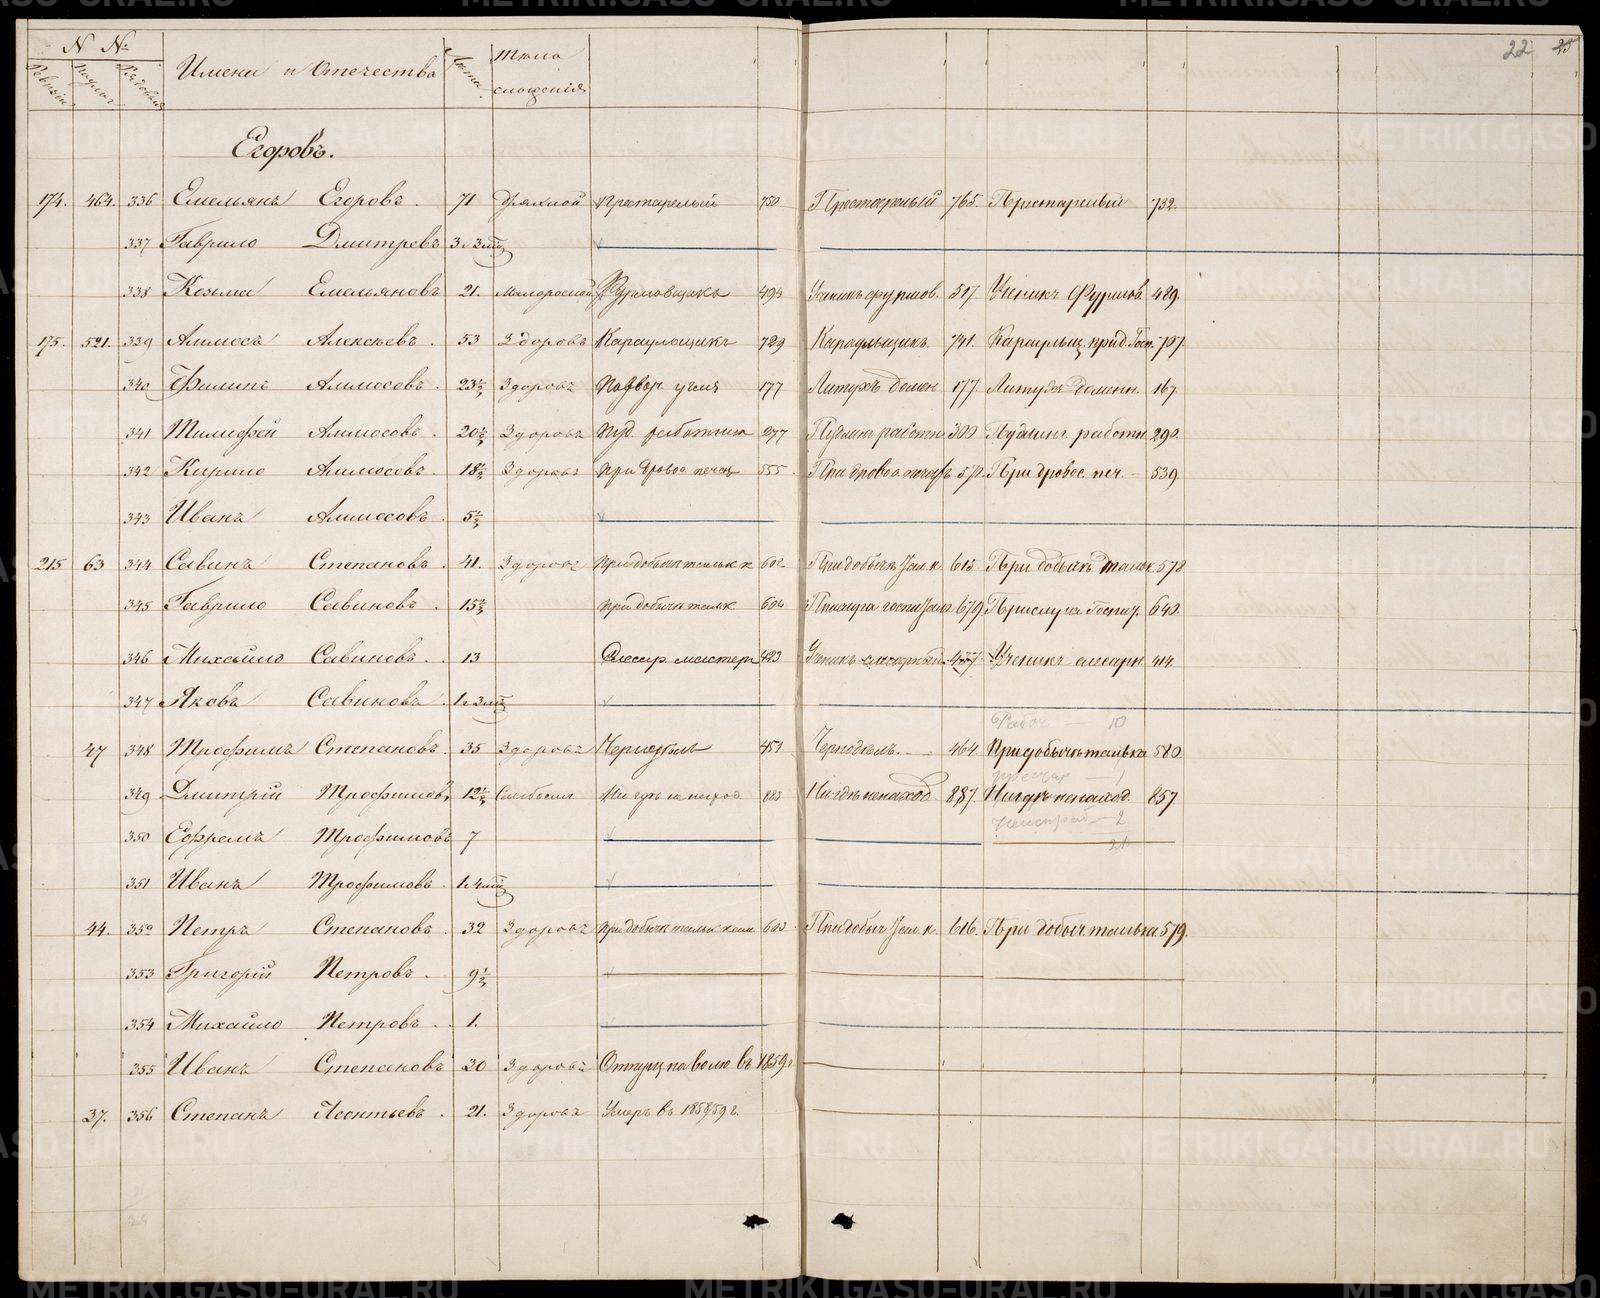 22 23
N Nº
Ревизіи Рядовый Имена и Отечества Лета Тѣло
сложенія
Егоровъ.
174. 464. 336 Емельянъ Егоровъ. 71 Дряхлой Престарелый 750 Престарелый 765. Престарелый 732.
337 Гаврило Дмитревъ 3 и 3 мц
338 Козьма Емельяновъ 21. Малорослой Фурмовщикъ 494 Ученикъ фурмов. 517 Ученикъ Фурмов. 489.
175. 521. 339 Аммосъ Алексѣевъ. 53 Здоровъ Караулощикъ 729 Караульщикъ 741. Караульщ. при д. Госп. 707
340 Филипъ Аммосовъ. 23½ Здоровъ 177 Литухъ домен 177. Литухъ доменн. 167
341 Тимофей Аммосовъ. 20½ Здоровъ Пуд. работник 277 Пудлин. работн. 300 Пудлинг. работн. 290.
342 Кирило Аммосовъ. 18½ Здоровъ При дровос. печах 555. При дровос. печахъ 571. При дровос. печ. 539
343 Иванъ Аммосовъ. 5½
215 63 344 Савинъ Степановъ. 41. Здоровъ При добычи тальк. к 602 При добычѣ 615. При добычѣ тальк. 578
345 Гаврило Савиновъ. 15½ При добычи тальк 604 Прислуга госпиталя 679. Прислуга Госпит. 640.
346 Михайло Савиновъ. 13 Слесар. мастер 423 Ученикъ слесарный 437. Ученикъ слесарн. 414.
347 Яковъ Савиновъ. 1 и 3 мц
Рабоч — 10
47 348 Трофимъ Степановъ. 35 Здоровъ Чернодѣлъ 451 Чернодѣлъ. — 464. При добычѣ талька 580.
— 1
349 Дмитрій Трофимовъ 12½ Слабосил Ни гдѣ не наход 883 Нигдѣ ненаход 887. Нигдѣ ненаход. 857
— 2
350 Ефремъ Трофимовъ 7
21
351 Иванъ Трофимовъ. 1 и 4 мц
44. 352 Петръ Степановъ. 32 Здоровъ При добычи тальк. камн 603 При добычѣ 616. При добыч. талька 579.
353 Григорій Петровъ. 9½
354 Михайло Петровъ. 1.
355 Иванъ Степановъ 30 Здоровъ Отпущ. на волю въ 1859 г.
37. 356 Степанъ Леонтьевъ. 21. Здоровъ Умеръ въ 1858/59 г.
METRIKI.GASO-URAL.RU